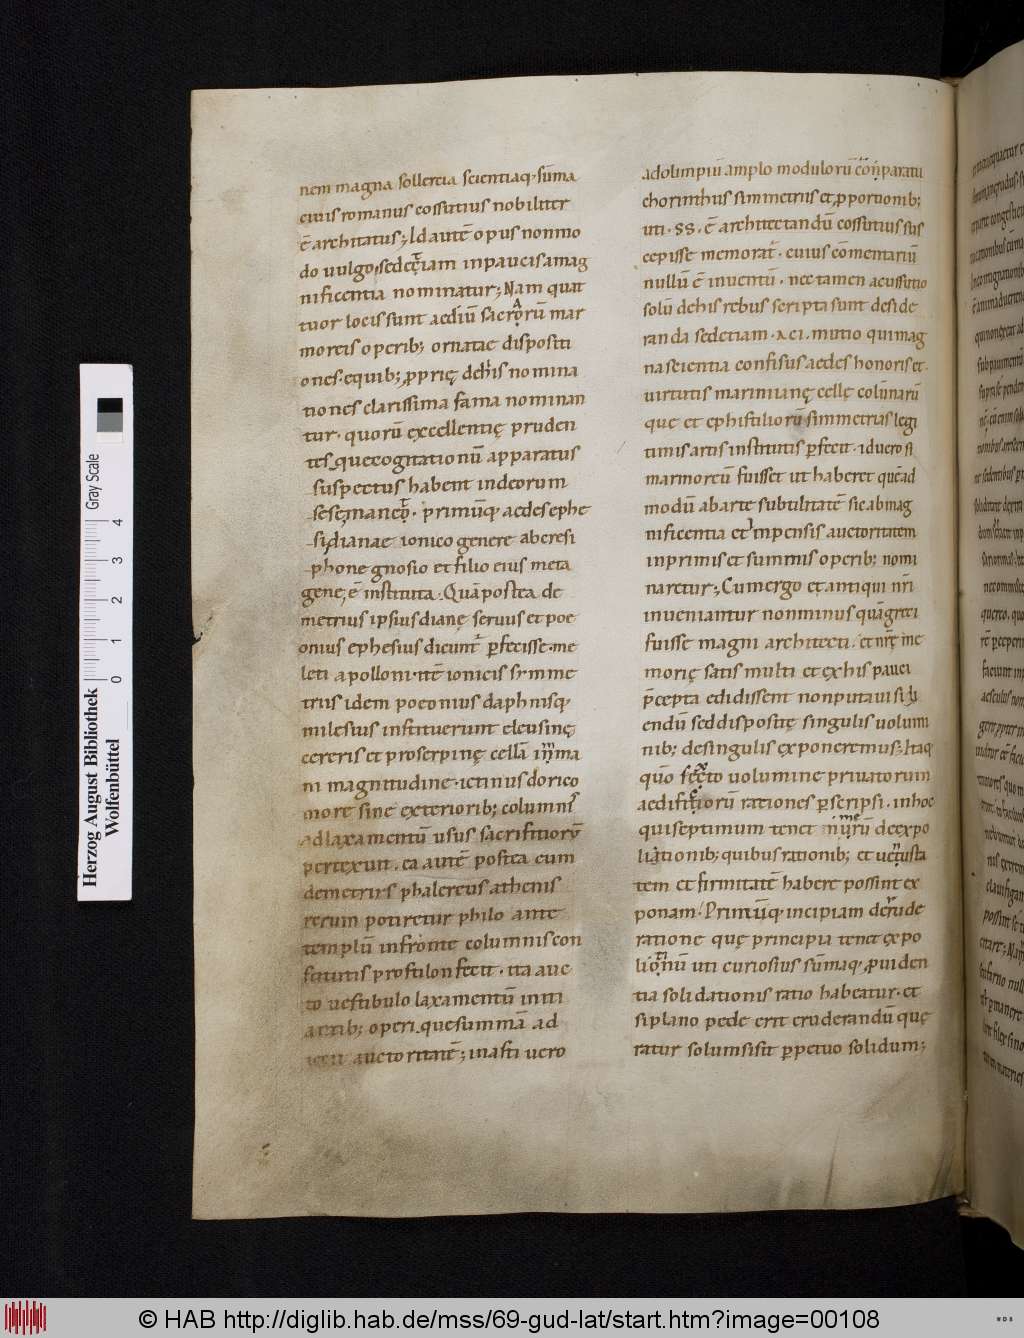 nem magna sollercia scientiaq; sūma
ciuis romanus cossutius nobiliter
ē architatus; Id autē opus nonmo
do uulgo, sed etiam in paucis a mag
nificentia nominatur; Nam quat
tuor locis sunt aediū sacrorū mar
moreis operib; ornatae dispositi
ones. equib; p̱prię dehis nomina
tiones clarissima fama nominan
tur. quorū excellentię pruden
tes quecogitationū apparatus
suspectus habent indeorum
sesemaneo. primūq aedes ephe
si dianae ionico genere abcresi
phone gnosio et filio eius meta
gene, ē instituta. Quā postea de
metrius ipsius dianę seruus et poe
onius ephesius dicunt̄ p̱fecisse. me
leti apolloni. itē ionicis symme
triis idem poeonius daphnisq
milesius instituerunt eleusinę
cereris et proserpinę cellā imma
ni magnitudine. ictinus dorico
more sine exteriorib; columnis
ad laxamentū usus sacrifitiorū
pertexuit. ea autē postea cum
demetrius phalereus athenis
rerum potiretur philo ante
templū infronte columnis con
stitutis prostilon fecit. ita auc
to uestibulo laxamentū initi
antib; operi, que summā ad
iecit auctoritatē; in asti uero
ad olimpiū amplo modulorū cōparatu
chorinthus simmetriis et p̱portionib;
uti. SS. ē architectandū cossutius sus
cepisse memorat̄. cuius cōmentariū
nullū ē inuentū. nec tamen acussutio
solū dehis rebus scripta sunt deside
randa sed etiam. A CI. mutio qui mag
na scientia confisus aedes honoris et
uirtutis marinianę cellę colūnarū
que et ephistiliorū simmetrias legi
timis artis institutis p̱fecit. id uero si
marmoreū fuisset ut haberet quēad
modū ab arte subtilitatē sic ab mag
nificentia et impensis auctoritatem
inprimis et summis operib; nomi
naretur; Cum ergo et antiqui nr̄i
inueniantur nonminus quā greci
fuisse magni architecti. et nrē me
morię satis multi et exhis pauci
p̄cepta edidissent nonputaui sil
endū sed dispositę singulis uolumi
nib; desingulis exponeremus; Itaq
quō sexto uolumine priuatorum
aedifitiorū rationes p̱scripsi. in hoc
qui septimum tenet numerū de expo
litionib; quibus rationib; et uetusta
tem et firmitatē habere possint ex
ponam. Primūq incipiam de rude
ratione quę principia tenet expo
litionū uti curiosius sūmaq p̱uiden
tia solidationis ratio habeatur. et
si plano pede erit eruderandū quę
ratur solum si sit p̱petuo solidum;
Herzog August Bibliothek
Wolfenbüttel
Gray Scale
0 1 2 3 4
© HAB http://diglib.hab.de/mss/69-gud-lat/start.htm?image=00108